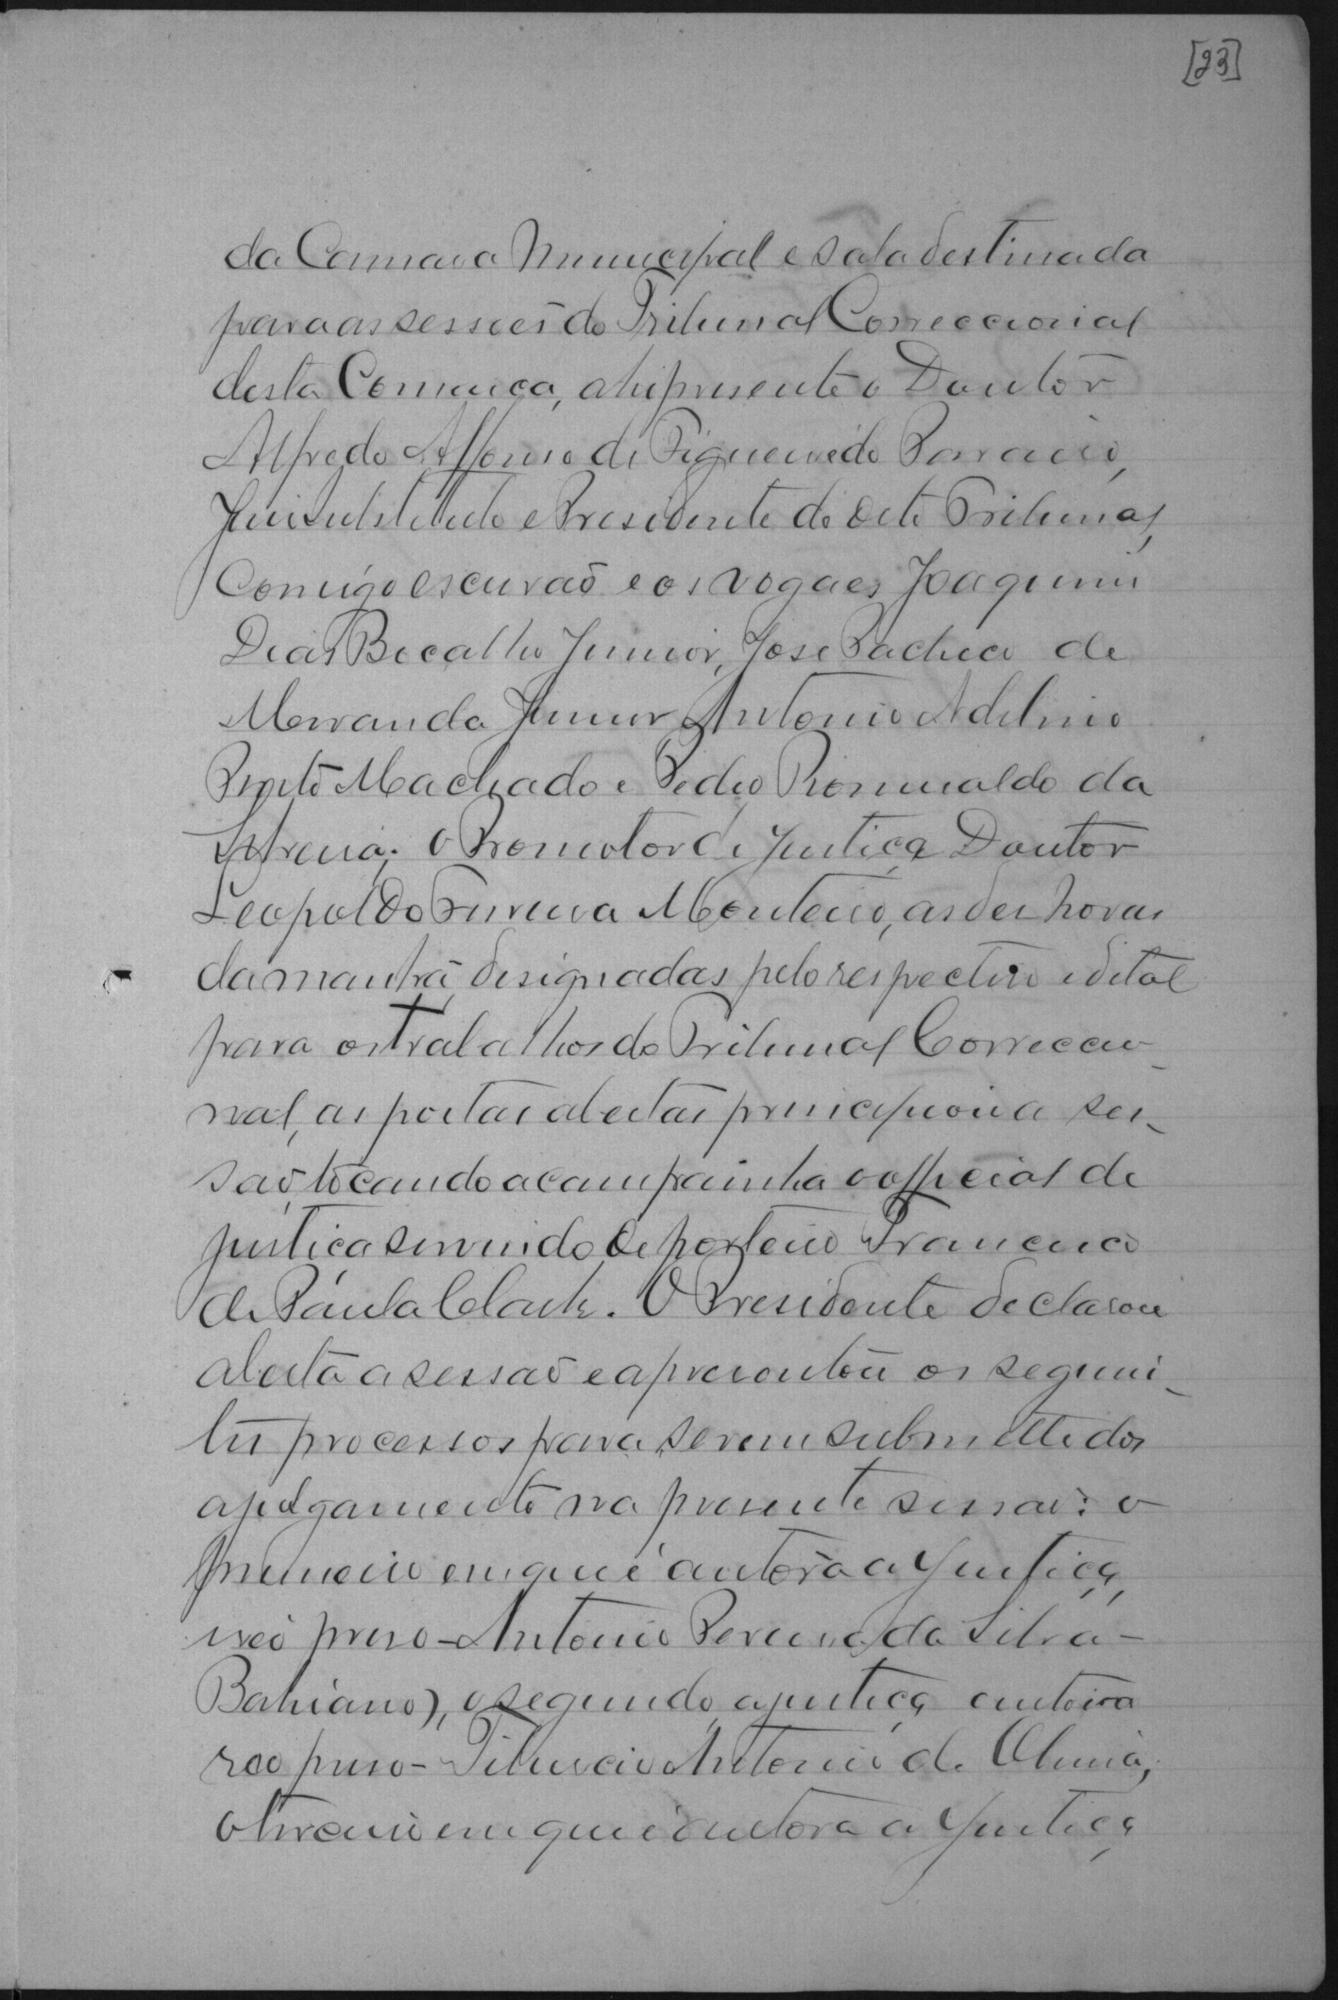 [23]
da Camara Municipal e sala destinada
para as sessões do Tribunal Correccional
desta Comarca, ahi presente o Doutor
Alfredo Affonso de Figueiredo
Juis substituto e Presidente do dito Tribunal,
Comigo escrivão e os vogaes Joaquim
Dias Bicalho Junior, José Pacheco de
Miranda Junior, Antonio Adelino
Pinto Machado e Pedro Romualdo da
o Promotor de Justiça Doutor
Leopoldo Ferreira Monteiro, as des horas
da manhã, designadas pelo respectivo edital
para os trabalhos do Tribunal Correccio-
nal, as portas abertas principiou a ses-
são, tocando a campainha o official de
justiça servindo de porteiro Francisco
de Páula Clark. O Presidente declarou
aberta a sessão e apresentou os seguin-
tes processos para serem submettidos
a julgamento na presente sessão: o
primeiro em que é autora a Justiça,
reo preso - Antonio Pereira da Silva -
Bahiano), o segundo, a justiça autora
reo preso - Antonio de
o terceiro em que é autora a Justiça